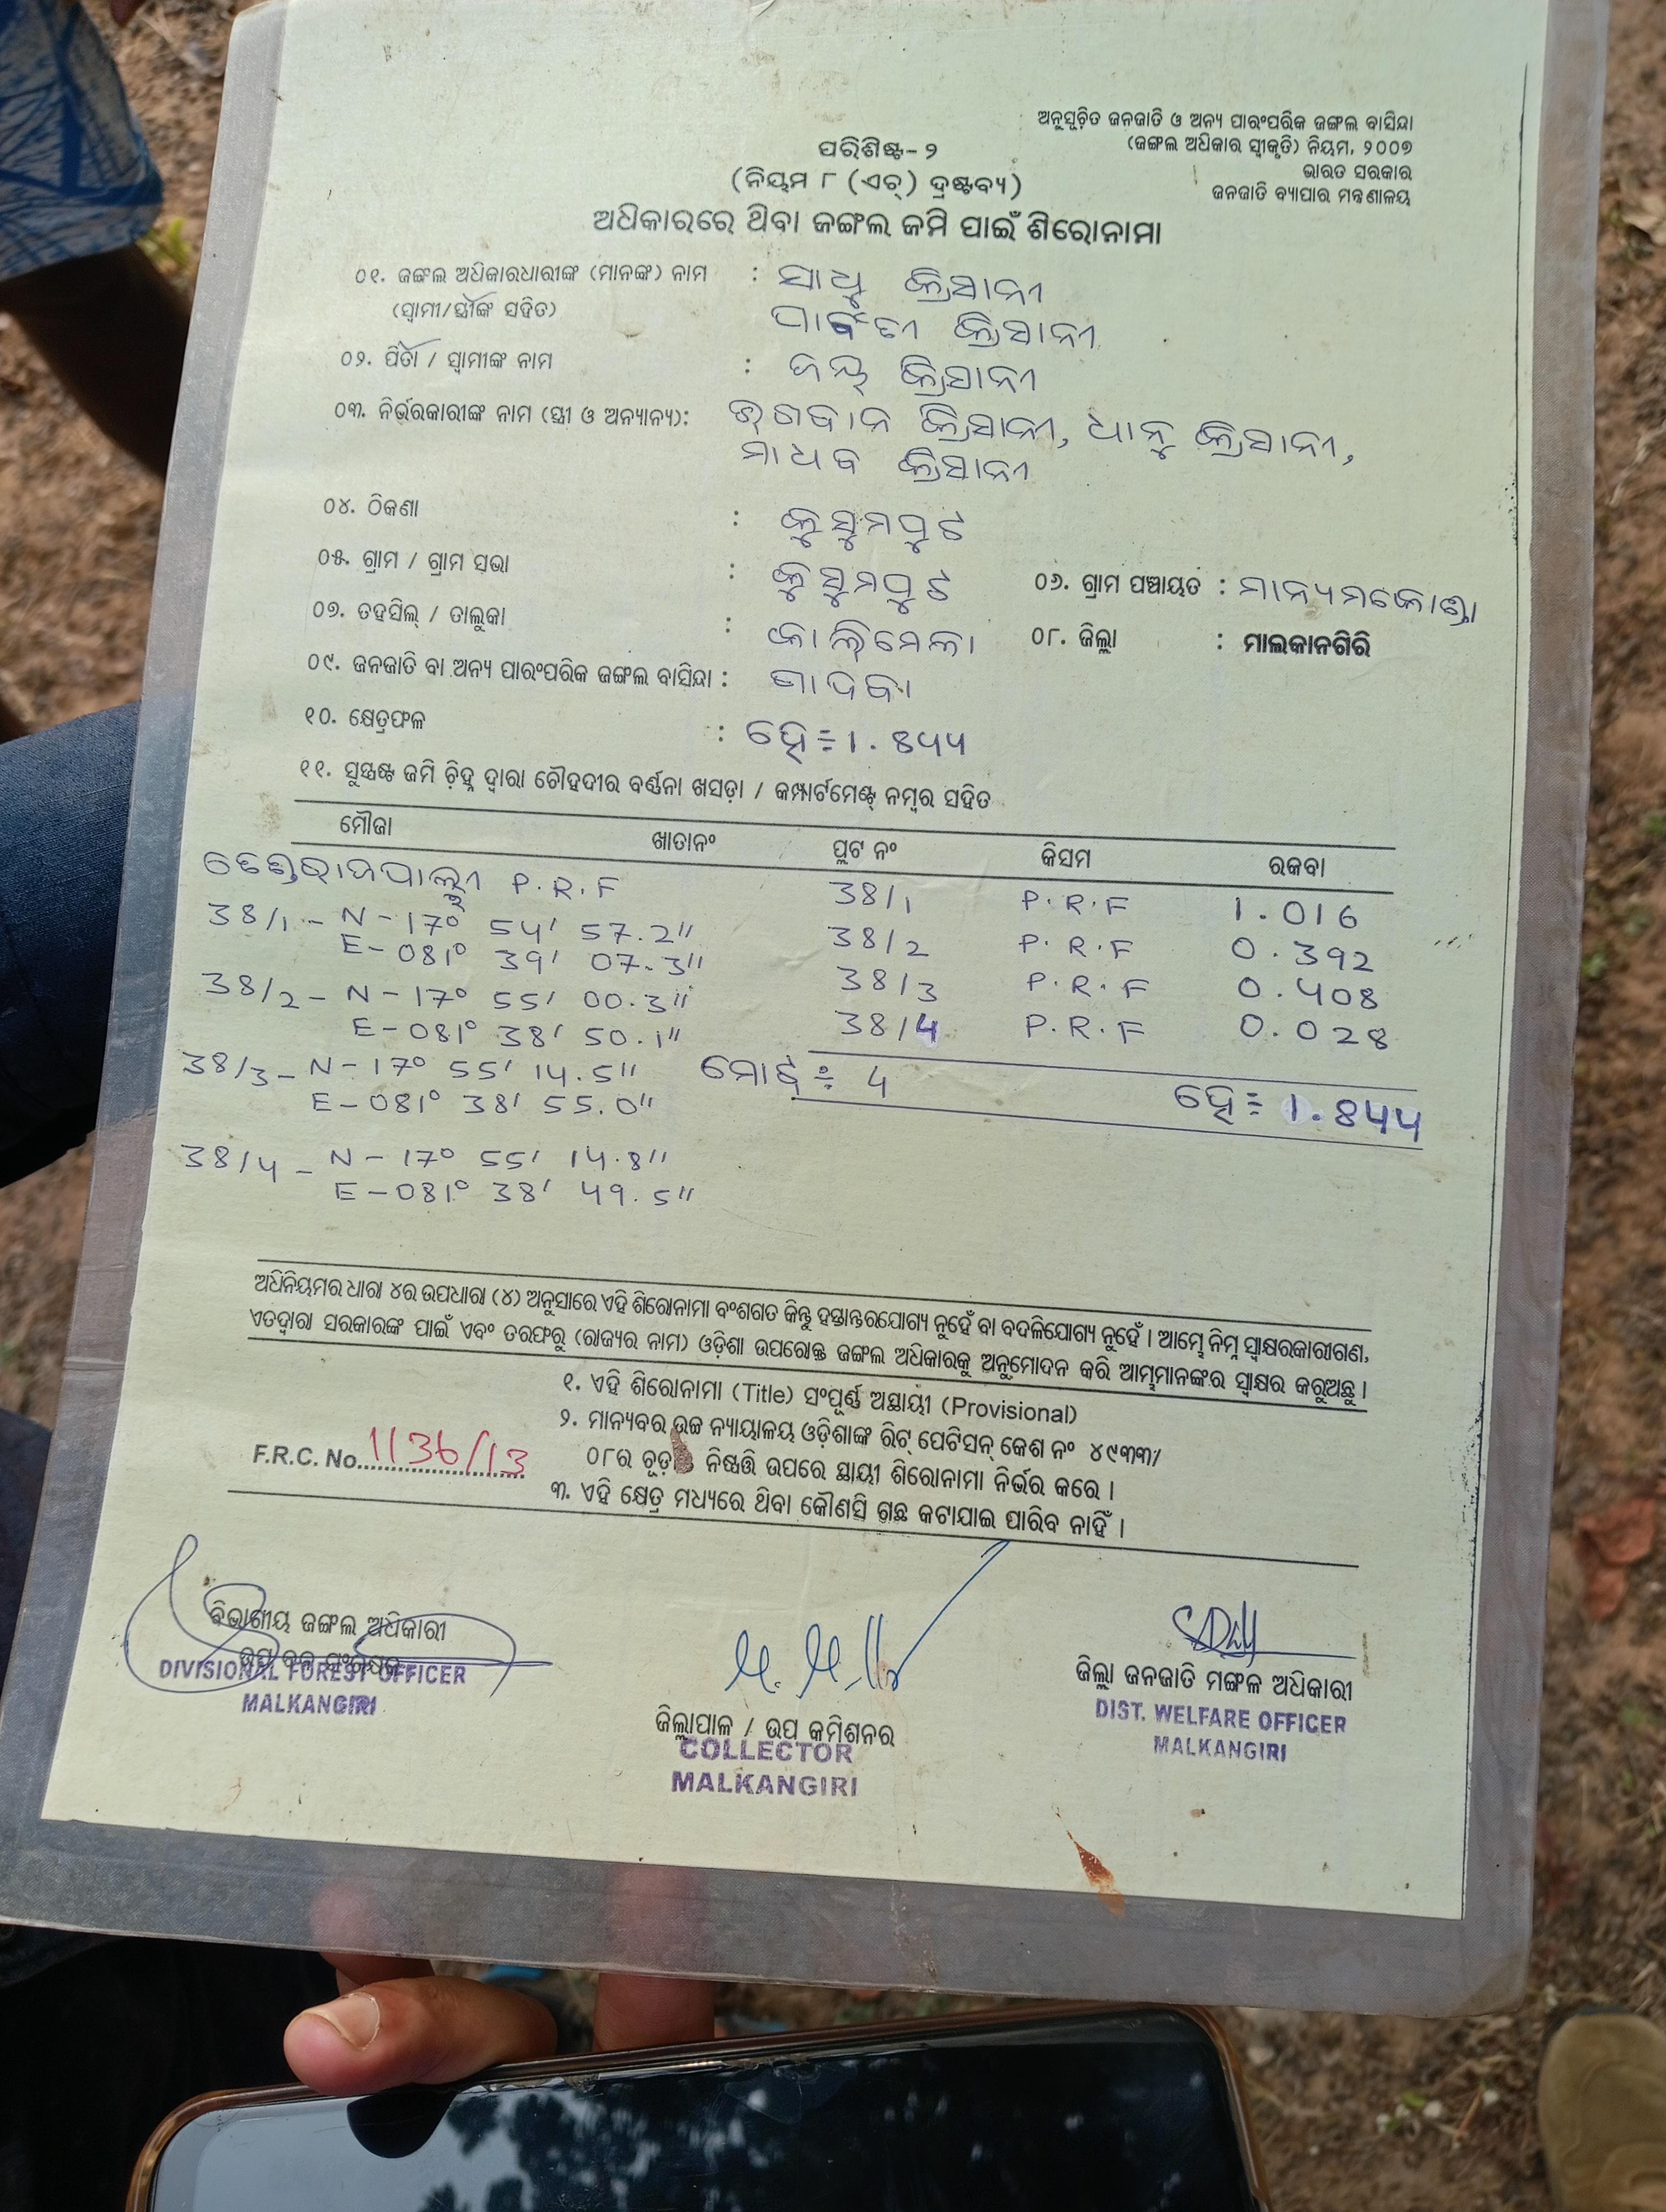 ଅନୁସୂଚିତ ଜନଜାତି ଓ ଅନ୍ୟ ପାରଂପରିକ ଜଙ୍ଗଲ ବାସିନ୍ଦା
(ଜଙ୍ଗଲ ଅଧିକାର ସ୍ୱୀକୃତି) ନିୟମ, ୨୦୦୭
ଭାରତ ସରକାର
ଜନଜାତି ବ୍ୟାପାର ମନ୍ତ୍ରଣାଳୟ
ପରିଶିଷ୍ଟ- ୨
(ନିୟମ ୮ (ଏଚ୍) ଦ୍ରଷ୍ଟବ୍ୟ)
ଅଧିକାରରେ ଥିବା ଜଙ୍ଗଲ ଜମି ପାଇଁ ଶିରୋନାମା
୦୧. ଜଙ୍ଗଲ ଅଧିକାରଧାରୀଙ୍କ (ମାନଙ୍କ) ନାମ : ସାଧୁ କ୍ରିସାନୀ
(ସ୍ୱାମୀ/ସ୍ତ୍ରୀଙ୍କ ସହିତ) ପାର୍ବତୀ କ୍ରିସାନୀ
୦୨. ପିତା / ସ୍ୱାମୀଙ୍କ ନାମ : ଜୟ କ୍ରିସାନୀ
୦୩. ନିର୍ଭରକାରୀଙ୍କ ନାମ (ସ୍ତ୍ରୀ ଓ ଅନ୍ୟାନ୍ୟ): ଭଗବାନ କ୍ରିସାନୀ, ଧାନୁ କ୍ରିସାନୀ,
ମାଧବ କ୍ରିସାନୀ
୦୪. ଠିକଣା : କୁସୁମପୁଟ
୦୫. ଗ୍ରାମ / ଗ୍ରାମ ସଭା : କୁସୁମପୁଟ ୦୬. ଗ୍ରାମ ପଞ୍ଚାୟତ : ମାନ୍ୟମକୋଣ୍ଡା
୦୭. ତହସିଲ୍ / ତାଲୁକା : କାଲିମେଳା ୦୮. ଜିଲ୍ଲା : ମାଲକାନଗିରି
୦୯. ଜନଜାତି ବା ଅନ୍ୟ ପାରଂପରିକ ଜଙ୍ଗଲ ବାସିନ୍ଦା : ଗାଦବା
୧୦. କ୍ଷେତ୍ରଫଳ : ହେ÷1.844
୧୧. ସୁସ୍ପଷ୍ଟ ଜମି ଚିହ୍ନ ଦ୍ୱାରା ଚୌହଦୀର ବର୍ଣ୍ଣନା ଖସଡ଼ା / କମ୍ପାର୍ଟମେଣ୍ଟ୍ ନମ୍ବର ସହିତ
ମୌଜା ଖାତାନଂ ପ୍ଲଟ ନଂ କିସମ ରକବା
P.R.F 38/1 P.R.F 1.016
38/1 - N - 17° 54' 57.2" 38/2 P.R.F 0.392
E - 081° 39' 07.3" 38/3 P.R.F 0.408
38/2 - N - 17° 55' 00.3" 38/4 P.R.F 0.028
E - 081° 38' 50.1"
38/3 - N - 17° 55' 14.5" ମୋଟ ÷ 4 ହେ÷ 1.844
E - 081° 38' 55.0"
38/4 - N - 17° 55' 14.8"
E - 081° 38' 49.5"
ଅଧିନିୟମର ଧାରା ୪ର ଉପଧାରା (୪) ଅନୁସାରେ ଏହି ଶିରୋନାମା ବଂଶଗତ କିନ୍ତୁ ହସ୍ତାନ୍ତରଯୋଗ୍ୟ ନୁହେଁ ବା ବଦଳିଯୋଗ୍ୟ ନୁହେଁ । ଆମ୍ଭେ ନିମ୍ନ ସ୍ୱାକ୍ଷରକାରୀଗଣ,
ଏତଦ୍ୱାରା ସରକାରଙ୍କ ପାଇଁ ଏବଂ ତରଫରୁ (ରାଜ୍ୟର ନାମ) ଓଡ଼ିଶା ଉପରୋକ୍ତ ଜଙ୍ଗଲ ଅଧିକାରକୁ ଅନୁମୋଦନ କରି ଆମ୍ଭମାନଙ୍କର ସ୍ୱାକ୍ଷର କରୁଅଛୁ ।
୧. ଏହି ଶିରୋନାମା (Title) ସଂପୂର୍ଣ୍ଣ ଅସ୍ଥାୟୀ (Provisional)
୨. ମାନ୍ୟବର ଉଚ୍ଚ ନ୍ୟାୟାଳୟ ଓଡ଼ିଶାଙ୍କ ରିଟ୍ ପେଟିସନ୍ କେଶ ନଂ ୪୯୩୩/
୦୮ର ନିଷ୍ପତ୍ତି ଉପରେ ସ୍ଥାୟୀ ଶିରୋନାମା ନିର୍ଭର କରେ ।
F.R.C. No. 1136/13
୩. ଏହି କ୍ଷେତ୍ର ମଧ୍ୟରେ ଥିବା କୌଣସି ଗଛ କଟାଯାଇ ପାରିବ ନାହିଁ ।
ବିଭାଗୀୟ ଜଙ୍ଗଲ ଅଧିକାରୀ
DIVISIONAL FOREST OFFICER
MALKANGIRI
ଜିଲ୍ଲାପାଳ / ଉପ କମିଶନର
COLLECTOR
MALKANGIRI
ଜିଲ୍ଲା ଜନଜାତି ମଙ୍ଗଳ ଅଧିକାରୀ
DIST. WELFARE OFFICER
MALKANGIRI